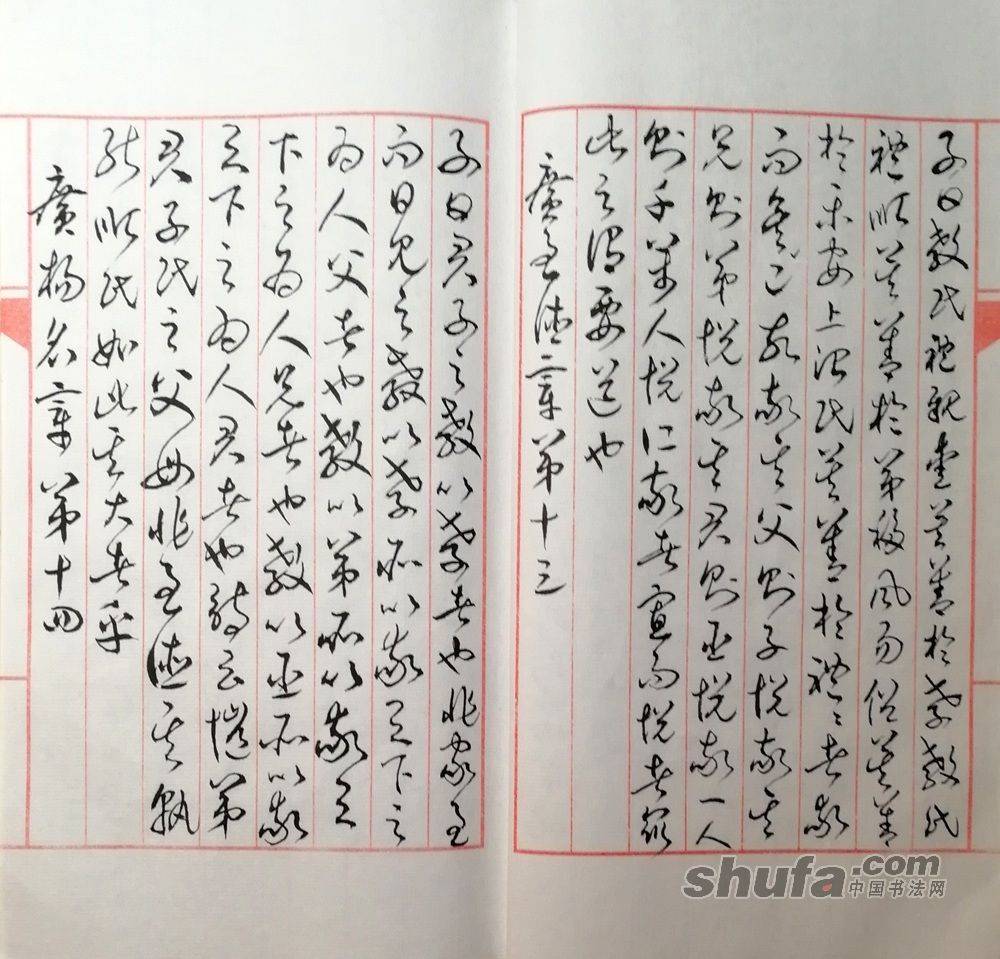 子曰教民禮親愛莫善於孝教民
禮順莫善於弟移風易俗莫善
於樂安上治民莫善於禮々者敬
而矣已故敬其父則子悅敬其
兄則弟悅敬其君則臣悅敬一人
則千萬人悅敬者寡而悅者眾
此之謂要道也
廣至德章第十三
子曰君子之教以孝者也非家至
而日見之教以孝所以敬天下之
為人父者也教以弟所以敬天
下之為人兄者也教以臣所以敬
天下之為人君者也詩云愷弟
君子民之父母非至德其孰
能順民如此其大者乎
廣揚名章第十四
shufa.com
中国书法网